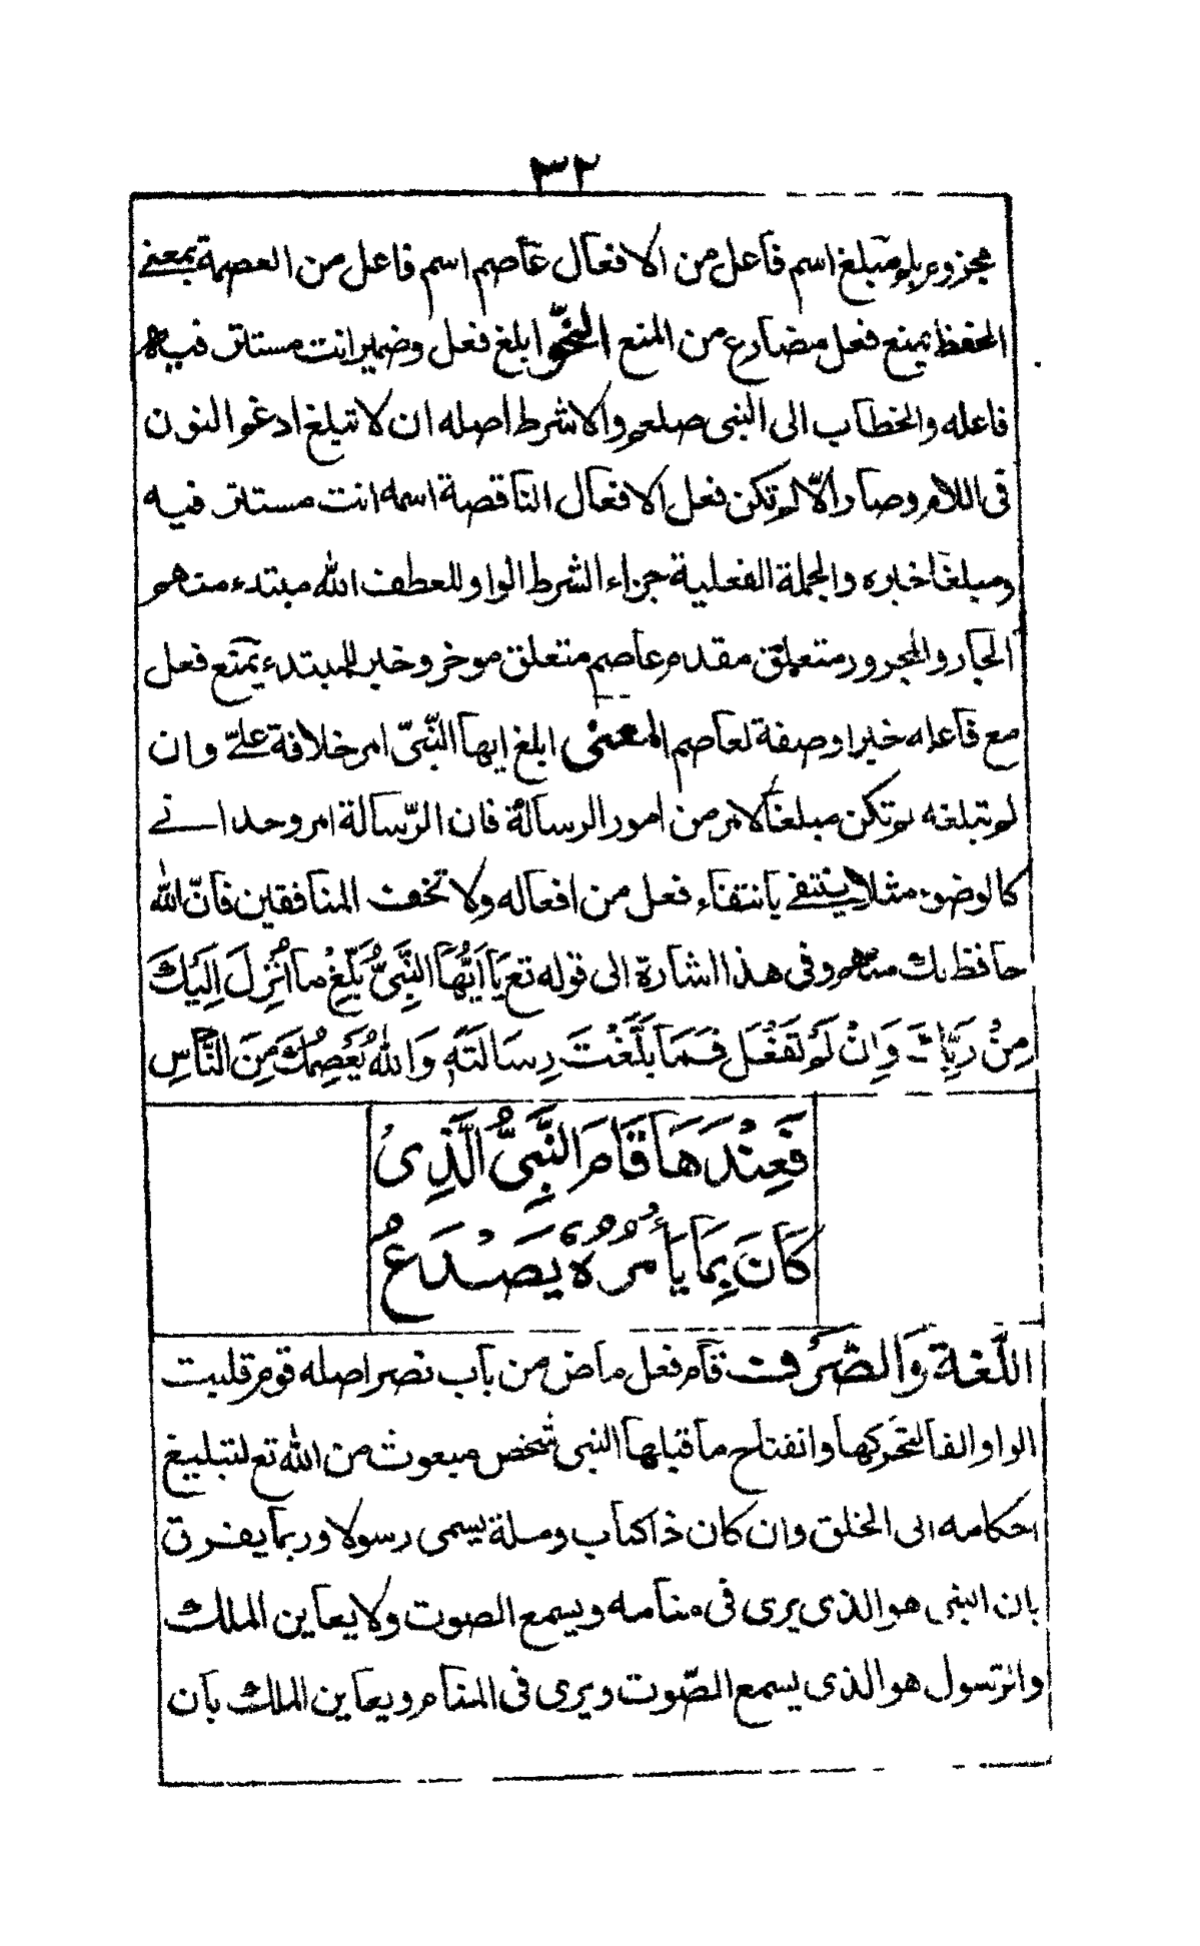 ٣٢
مجزوم بلم مبلغ اسم فاعل من الافعال عاصم اسم فاعل من العصمة بمعنے
الحفظ يمنع فعل مضارع من المنع النحو ابلغ فعل وضمير انت مستتر فيه
فاعله والخطاب الى النبى صلعم والا شرط اصله ان لا تبلغ ادغموا النون
فى اللام وصار الّا لم تكن فعل الافعال الناقصة اسمه انت مستتر فيه
ومبلغا خبره والجملة الفعلية جزاء الشرط الواو للعطف الله مبتدء منهم
الجار والمجرور متعلق مقدم عاصم متعلق موخر وخبر للمبتدء يمنع فعل
مع فاعله خبر اوصفة لعاصم المعنى ابلغ ايها النّبىّ امر خلافة علىّ وان
لم تبلغه لم تكن مبلغا لامر من امور الرسالة فان الرّسالة امر وحدانے
كالوضوء مثلا ينتفے بانتفاء فعل من افعاله ولا تخف المنافقين فانّ الله
حافظ بك منهم وفى هذا اشارة الى قوله تع يَا اَيُّهَا النَّبِىُّ بَلِّغْ مَا اُنْزِلَ اِلَيْكَ
مِنْ رَبِّكَ وَاِنْ لَمْ تَفْعَلْ فَمَا بَلَّغْتَ رِسَالَتَهٗ وَاللهُ يَعْصِمُكَ مِنَ النَّاسِ
فَعِنْدَهَا قَامَ النَّبِىُّ الَّذِىْ
كَانَ بِمَا يَأْمُرُهٗ يَصْدَعُ
اللّغة وَالصَّرْف قام فعل ماض من باب نصر اصله قوم قلبت
الواو الفا لتحركها وانفتاح ما قبلها النبى شخص مبعوث من الله تع لتبليغ
احكامه الى الخلق وان كان ذا كتاب وملة يسمى رسولا وربما يفرق
بان النبى هو الذى يرى فى منامه ويسمع الصوت ولا يعاين الملك
والرّسول هو الذى يسمع الصّوت ويرى فى المنام ويعاين الملك بان